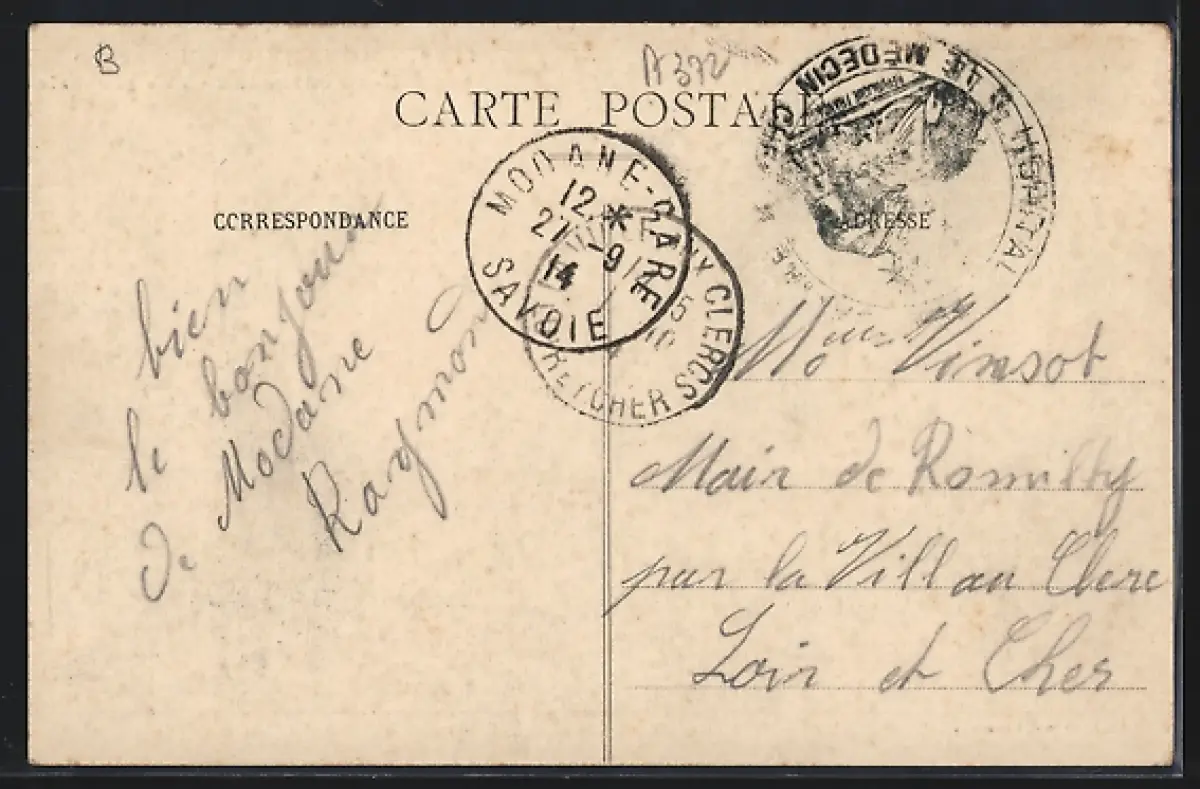 B
A 392
CARTE POSTALE
CORRESPONDANCE
ADRESSE
MODANE-GARE
12 *
27 -9
14
SAVOIE
CLERCS
ET CHER
5
LE MÉDECIN
HÔPITAL
bien
le bonjour
de Modane
Raymond
Vinsot
Mair de Romilly
par la Vill au Clerc
Loir et Cher